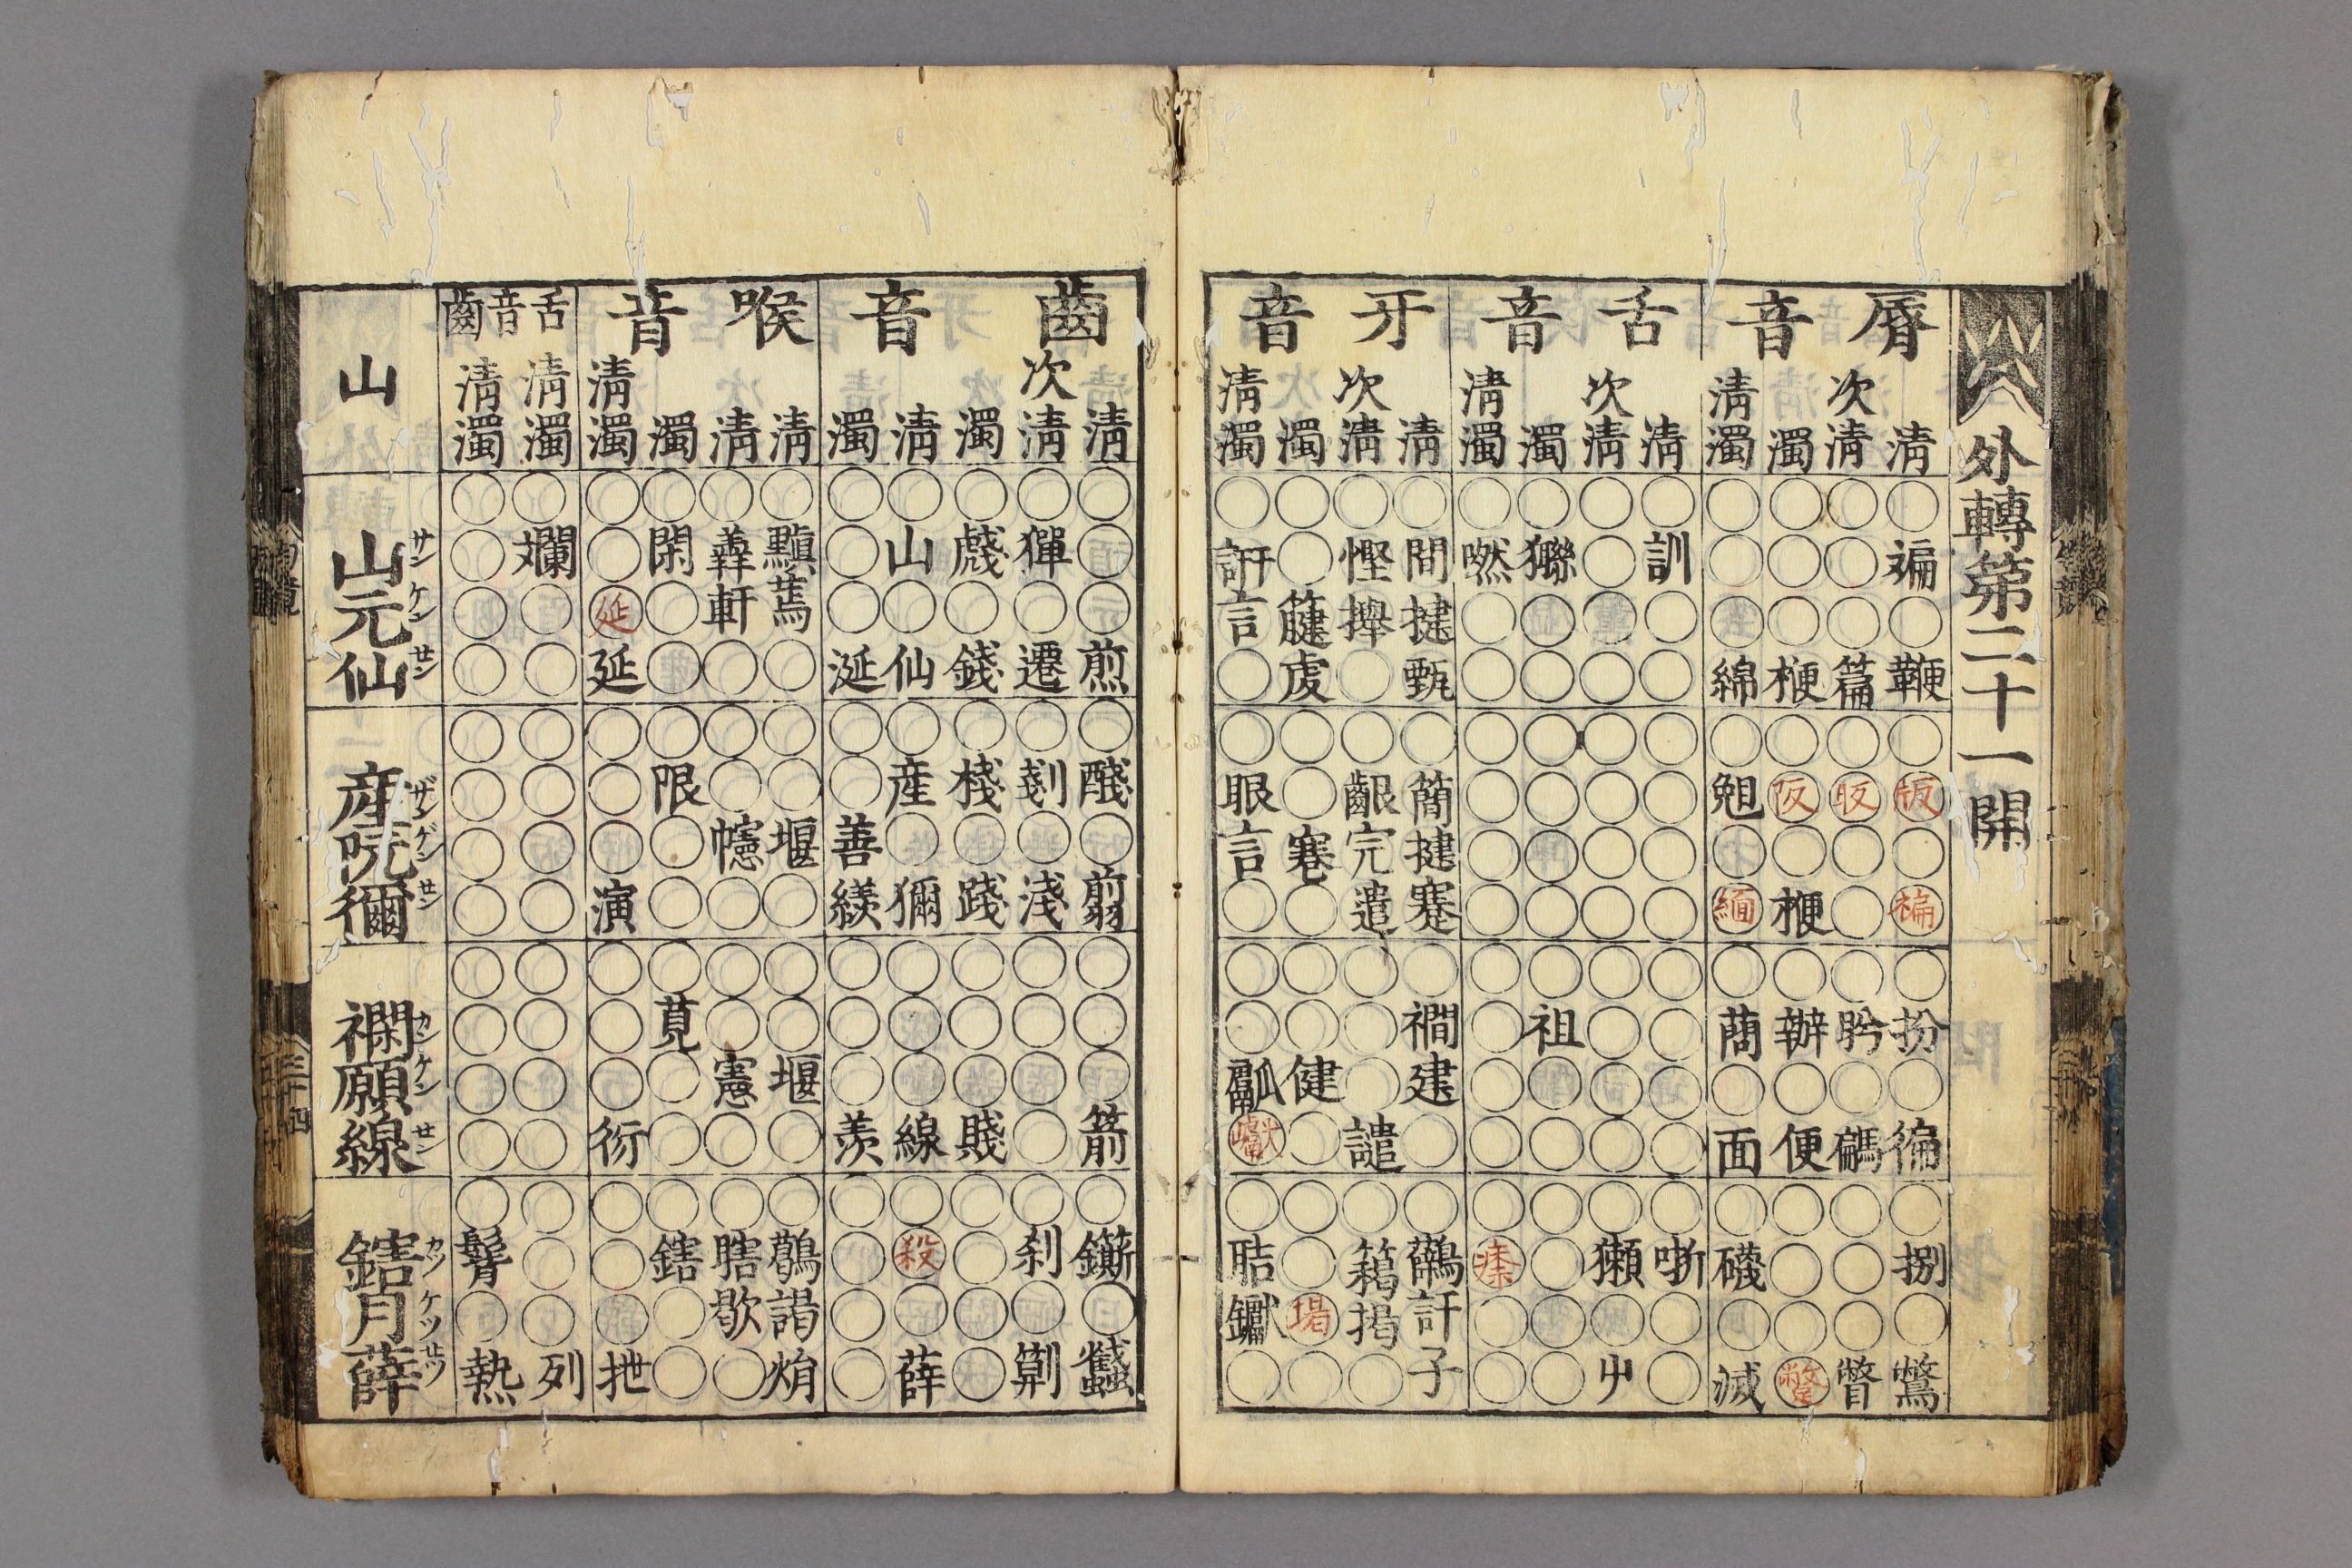 外轉第二十一開
脣音
清○斒○鞭○版○褊○扮○徧○捌○鷩
次清○○○篇○眅○○○盼○騗○○○瞥
濁○○○楩○阪○楩○辦○便○○○蹩
清濁○○○綿○○緬○蕳○面○礣○滅
舌音
清○訓○○○○○○○○○○○哳○○
次清○○○○○○○○○○○○○獺○屮
濁○○○○○○○○袒○○○○○○
清濁○嘫○○○○○○○○○○○○○
牙音
清○間揵甄○簡揵蹇○襉建○○訐孑
次清○慳攑○○齦完遣○○○譴○揭○
濁○○虔○○寋○○○健○○○揭○
清濁○訮言○○眼言○○○甗○聐钀○
齒音
清○○○煎○醆○翦○○○箭○○蠽
次清○○遷○剗○淺○○○○○刹○
濁○○錢○棧○踐○○○賤○○○○
清○山○仙○産○獮○○○線○殺○薛
濁○○○涎○○善○○○羨○○○○
喉音
清○黰蔫○○○堰○○○堰○○謁焆
次清○羴軒○○○幰○○○憲○○瞎歇○
濁○閑○○○限○○○莧○○○鎋○○
清濁○○延延○○○演○○○衍○○○抴
舌音齒
清濁○斕○○○○○○○○○○○○○列
清濁○○○○○○○○○○○○○○熱
山
山元仙
サンケンセン
産阮獮
サンゲンセン
襉願線
カンケンセン
鎋月薛
カツケツセツ
三十四